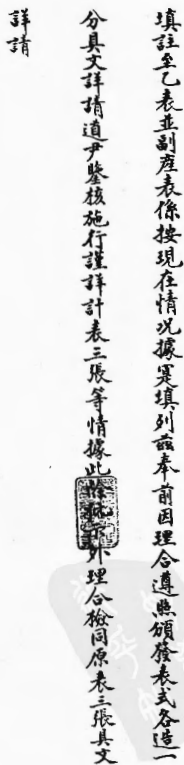 填註至乙表並副産表係按現在情况據寔填列茲奉前因理合遵照頒發表式各造一
分具文詳請道尹鑒核施行謹詳計表三張等情據此除外理合檢同原表三張具文
詳請